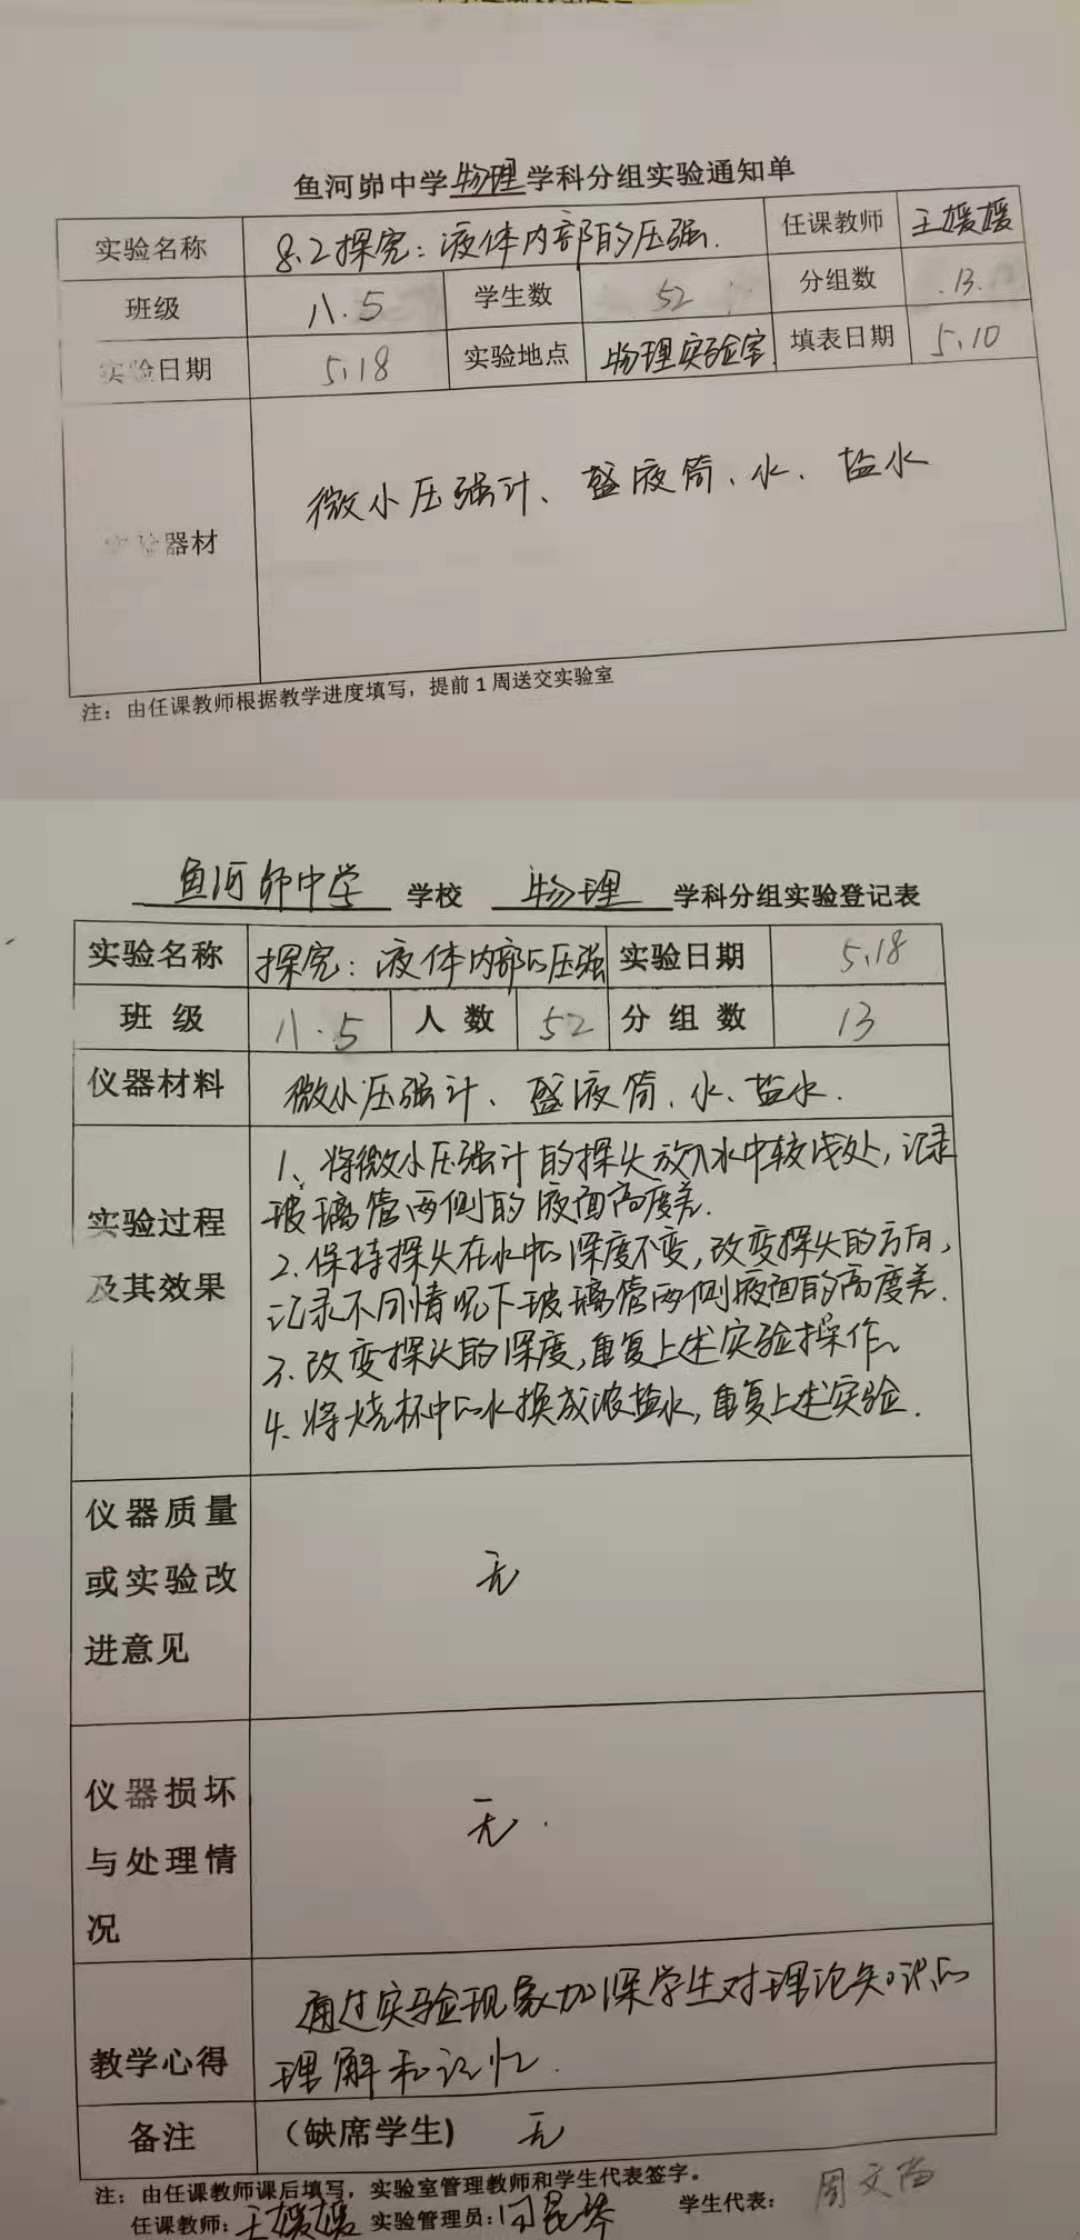 鱼河峁中学物理学科分组实验通知单
实验名称 8.2探究：液体内部的压强. 任课教师 王媛媛
班级 八.5 学生数 52 分组数 13.
实验日期 5.18 实验地点 物理实验室. 填表日期 5.10
实验器材 微小压强计、盛液筒、水、盐水
注：由任课教师根据教学进度填写，提前1周送交实验室
鱼河峁中学 学校 物理 学科分组实验登记表
实验名称 探究：液体内部的压强 实验日期 5.18
班级 八.5 人数 52 分组数 13
仪器材料 微小压强计、盛液筒、水、盐水.
实验过程及其效果
1、将微小压强计的探头放入水中较浅处，记录
玻璃管两侧的液面高度差.
2、保持探头在水中的深度不变，改变探头的方向，
记录不同情况下玻璃管两侧液面的高度差.
3、改变探头的深度，重复上述实验操作。
4、将烧杯中的水换成浓盐水，重复上述实验.
仪器质量
或实验改 无
进意见
仪器损坏
与处理情 无.
况
教学心得
通过实验现象加深学生对理论知识的
理解和记忆.
备注 （缺席学生) 无
注：由任课教师课后填写，实验室管理教师和学生代表签字。
任课教师：王媛媛 实验管理员： 学生代表：周文